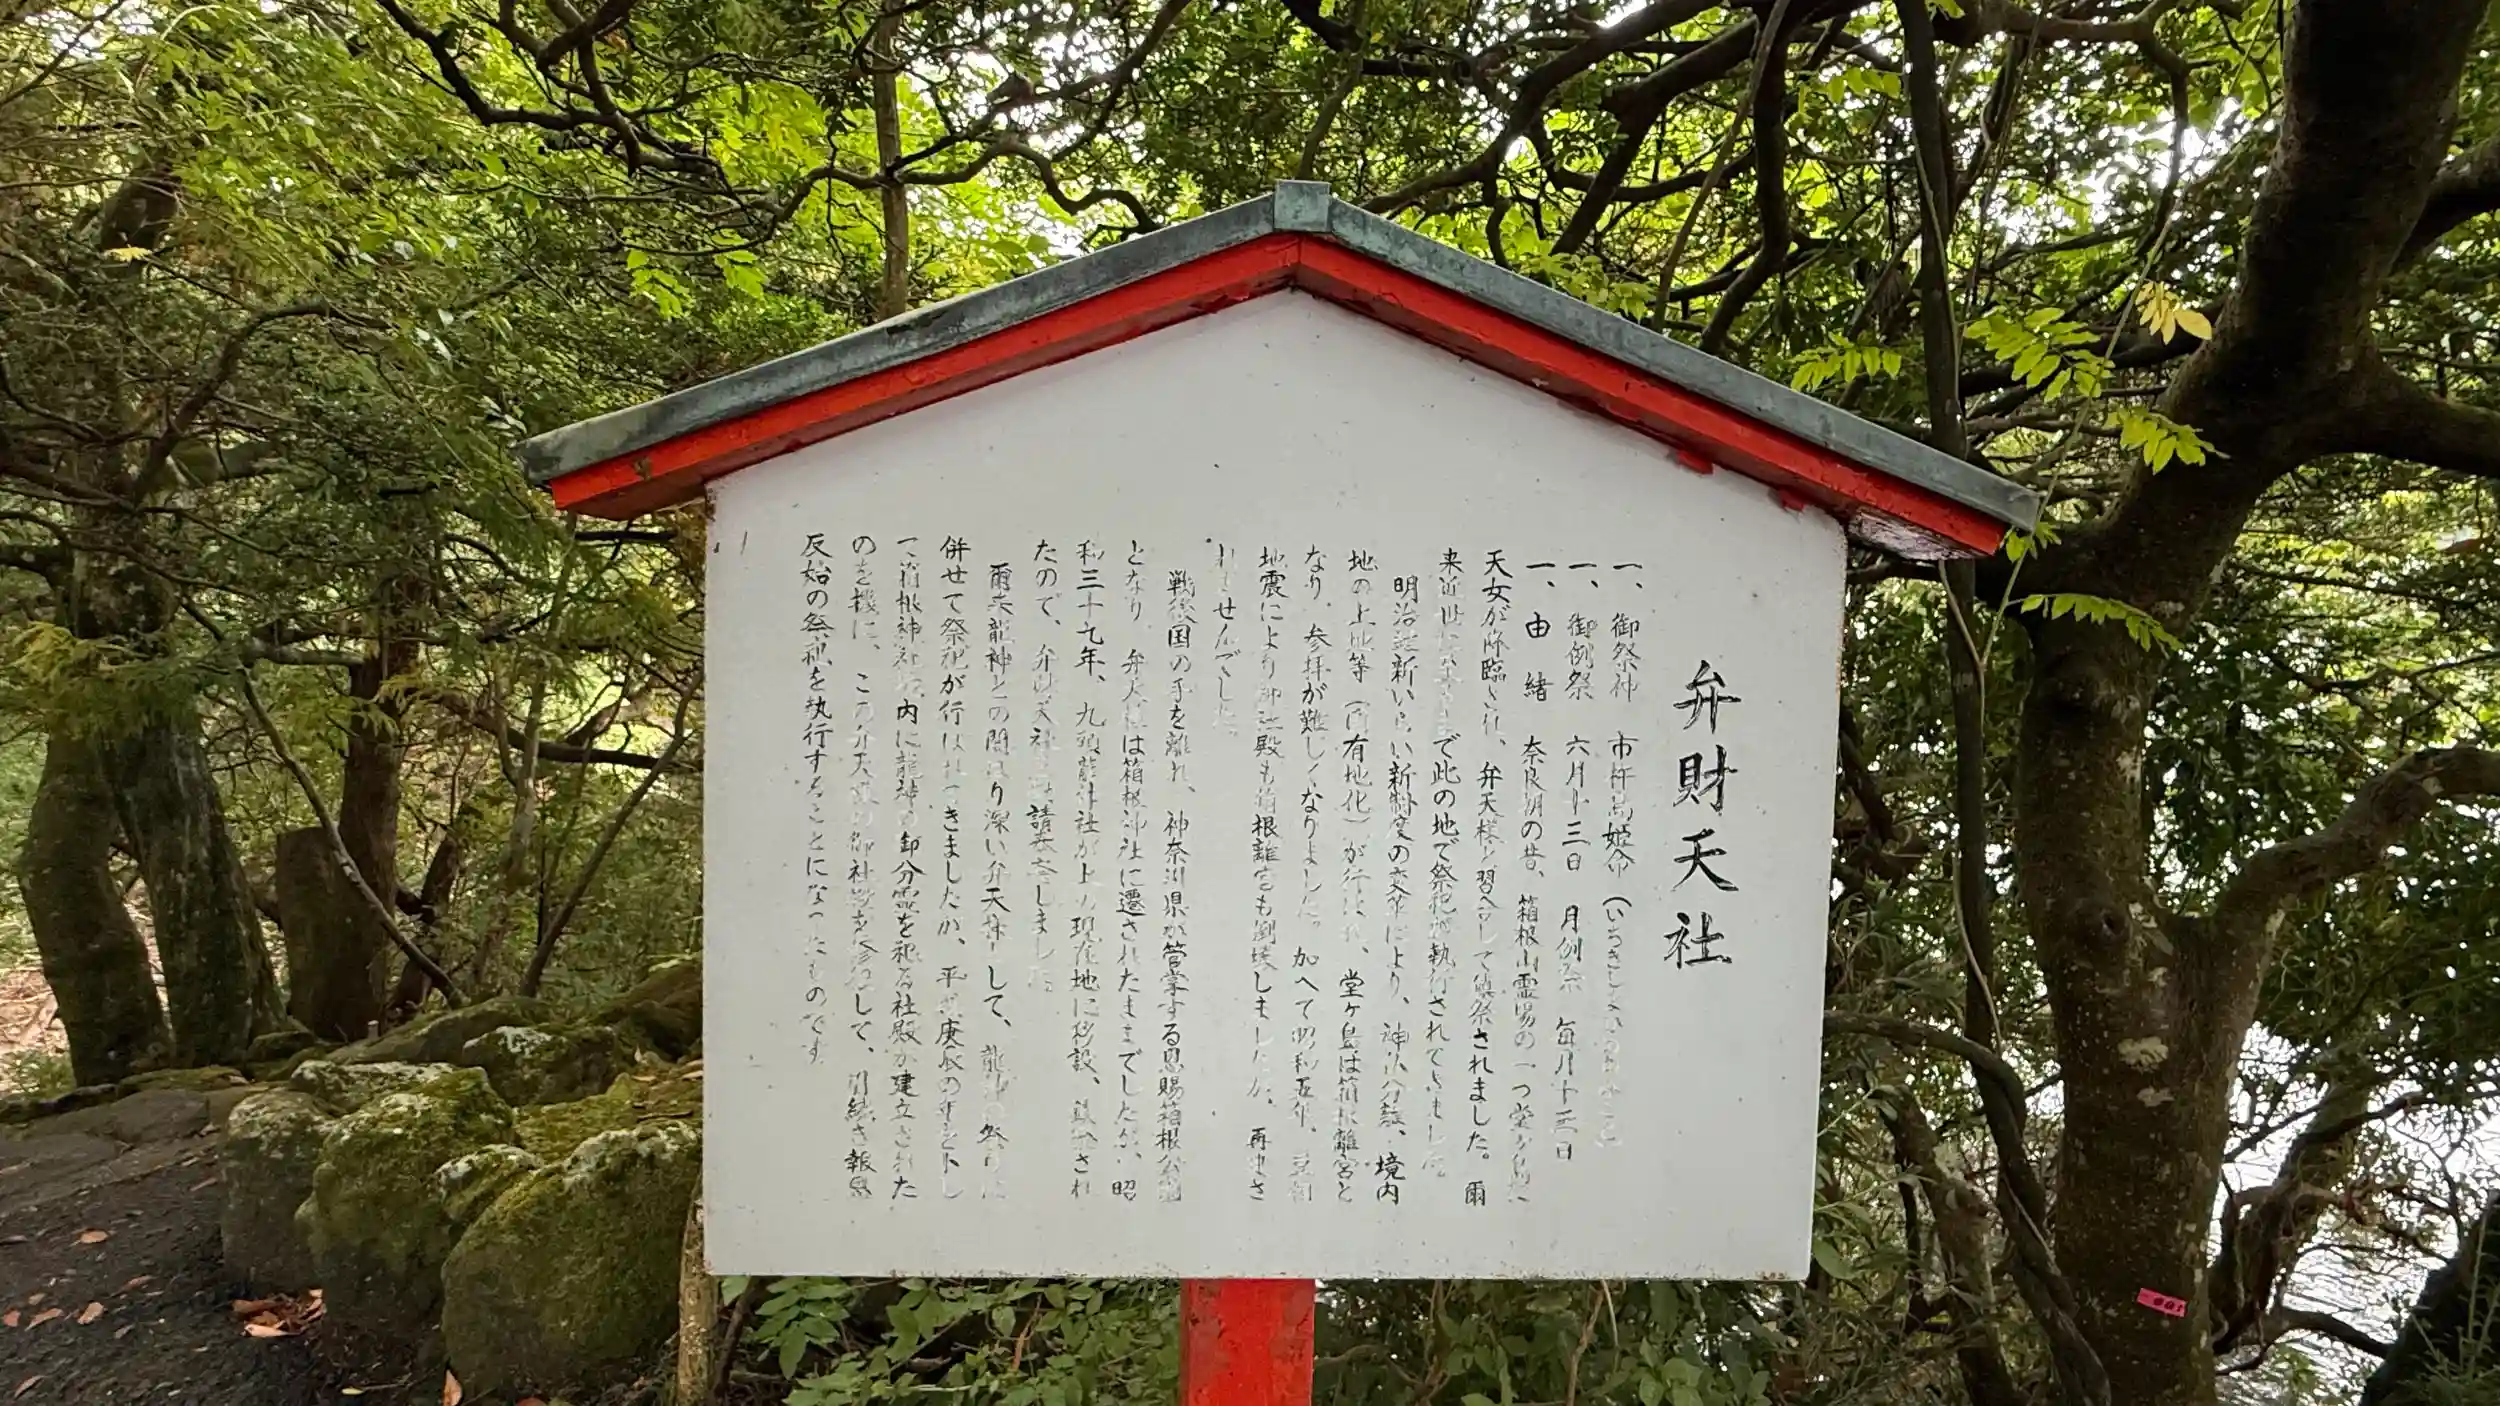 弁財天社
一、御祭神 市杵島姫命
一、御例祭 六月十三日 月例祭 毎月十三日
一、由緒 奈良朝の昔、箱根山霊場の一つ堂ヶ島に
天女が降臨され、弁天様と習合して鎮祭されました。爾
来近世に至るまで此の地で祭祀が執行されてきました
明治維新いらい新制度の変革により、神仏分離、境内
地の上地等(国有地化)が行はれ、堂ヶ島は箱根離宮と
なり、参拝が難しくなりました。加へて昭和五年、豆相
地震により御社殿も箱根離宮も倒壊しましたが、再興さ
れませんでした。
戦後国の手を離れ、神奈川県が管掌する恩賜箱根公園
となり、弁天様は箱根神社に遷されたままでしたが、昭
和三十九年、九頭龍神社が上の現在地に移設、
され
たので、弁財天社
しました
爾来龍神との関はり深い弁天様として、龍神の祭りに
併せて祭祀が行はれてきましたが、平成庚辰の年をトし
て箱根神社境内に龍神の御分霊を祀る社殿が建立された
のを機に、この弁天様の御社殿を修復して、引続き報恩
反始の祭祀を執行することになったものです